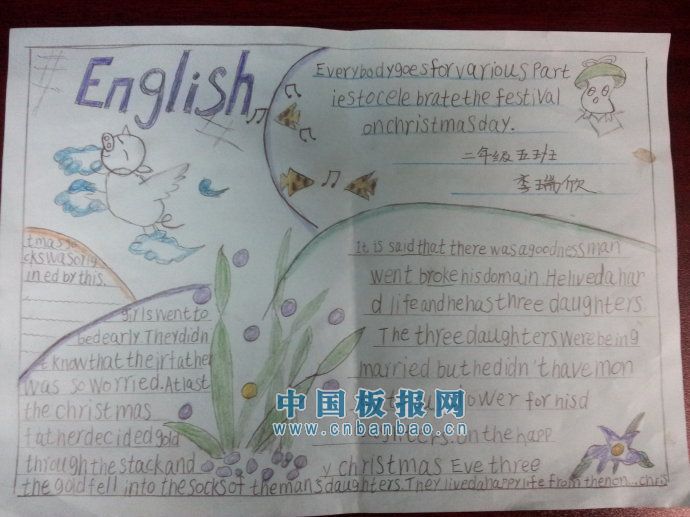 English
Everybody goes for various Part
ies to cele brate the festival
on christmas day.
二年级五班
李瑞欣
It is said that there was a goodness man
went broke his domain. He lived a har
d life and he has three daughters.
The three daughters were being
married but he didn't have mon
ower for his d
ghters. on the happ
y christmas Eve three
girls went to
bed early. They didn
't know that their father
was so worried. At last
the christmas
father decided gold
through the stack and
the gold fell into the socks of the man's daughters. They lived a happy life from then on...chris
tmas so
cks was orig
ined by this.
中国板报网
www.cnbanbao.cn